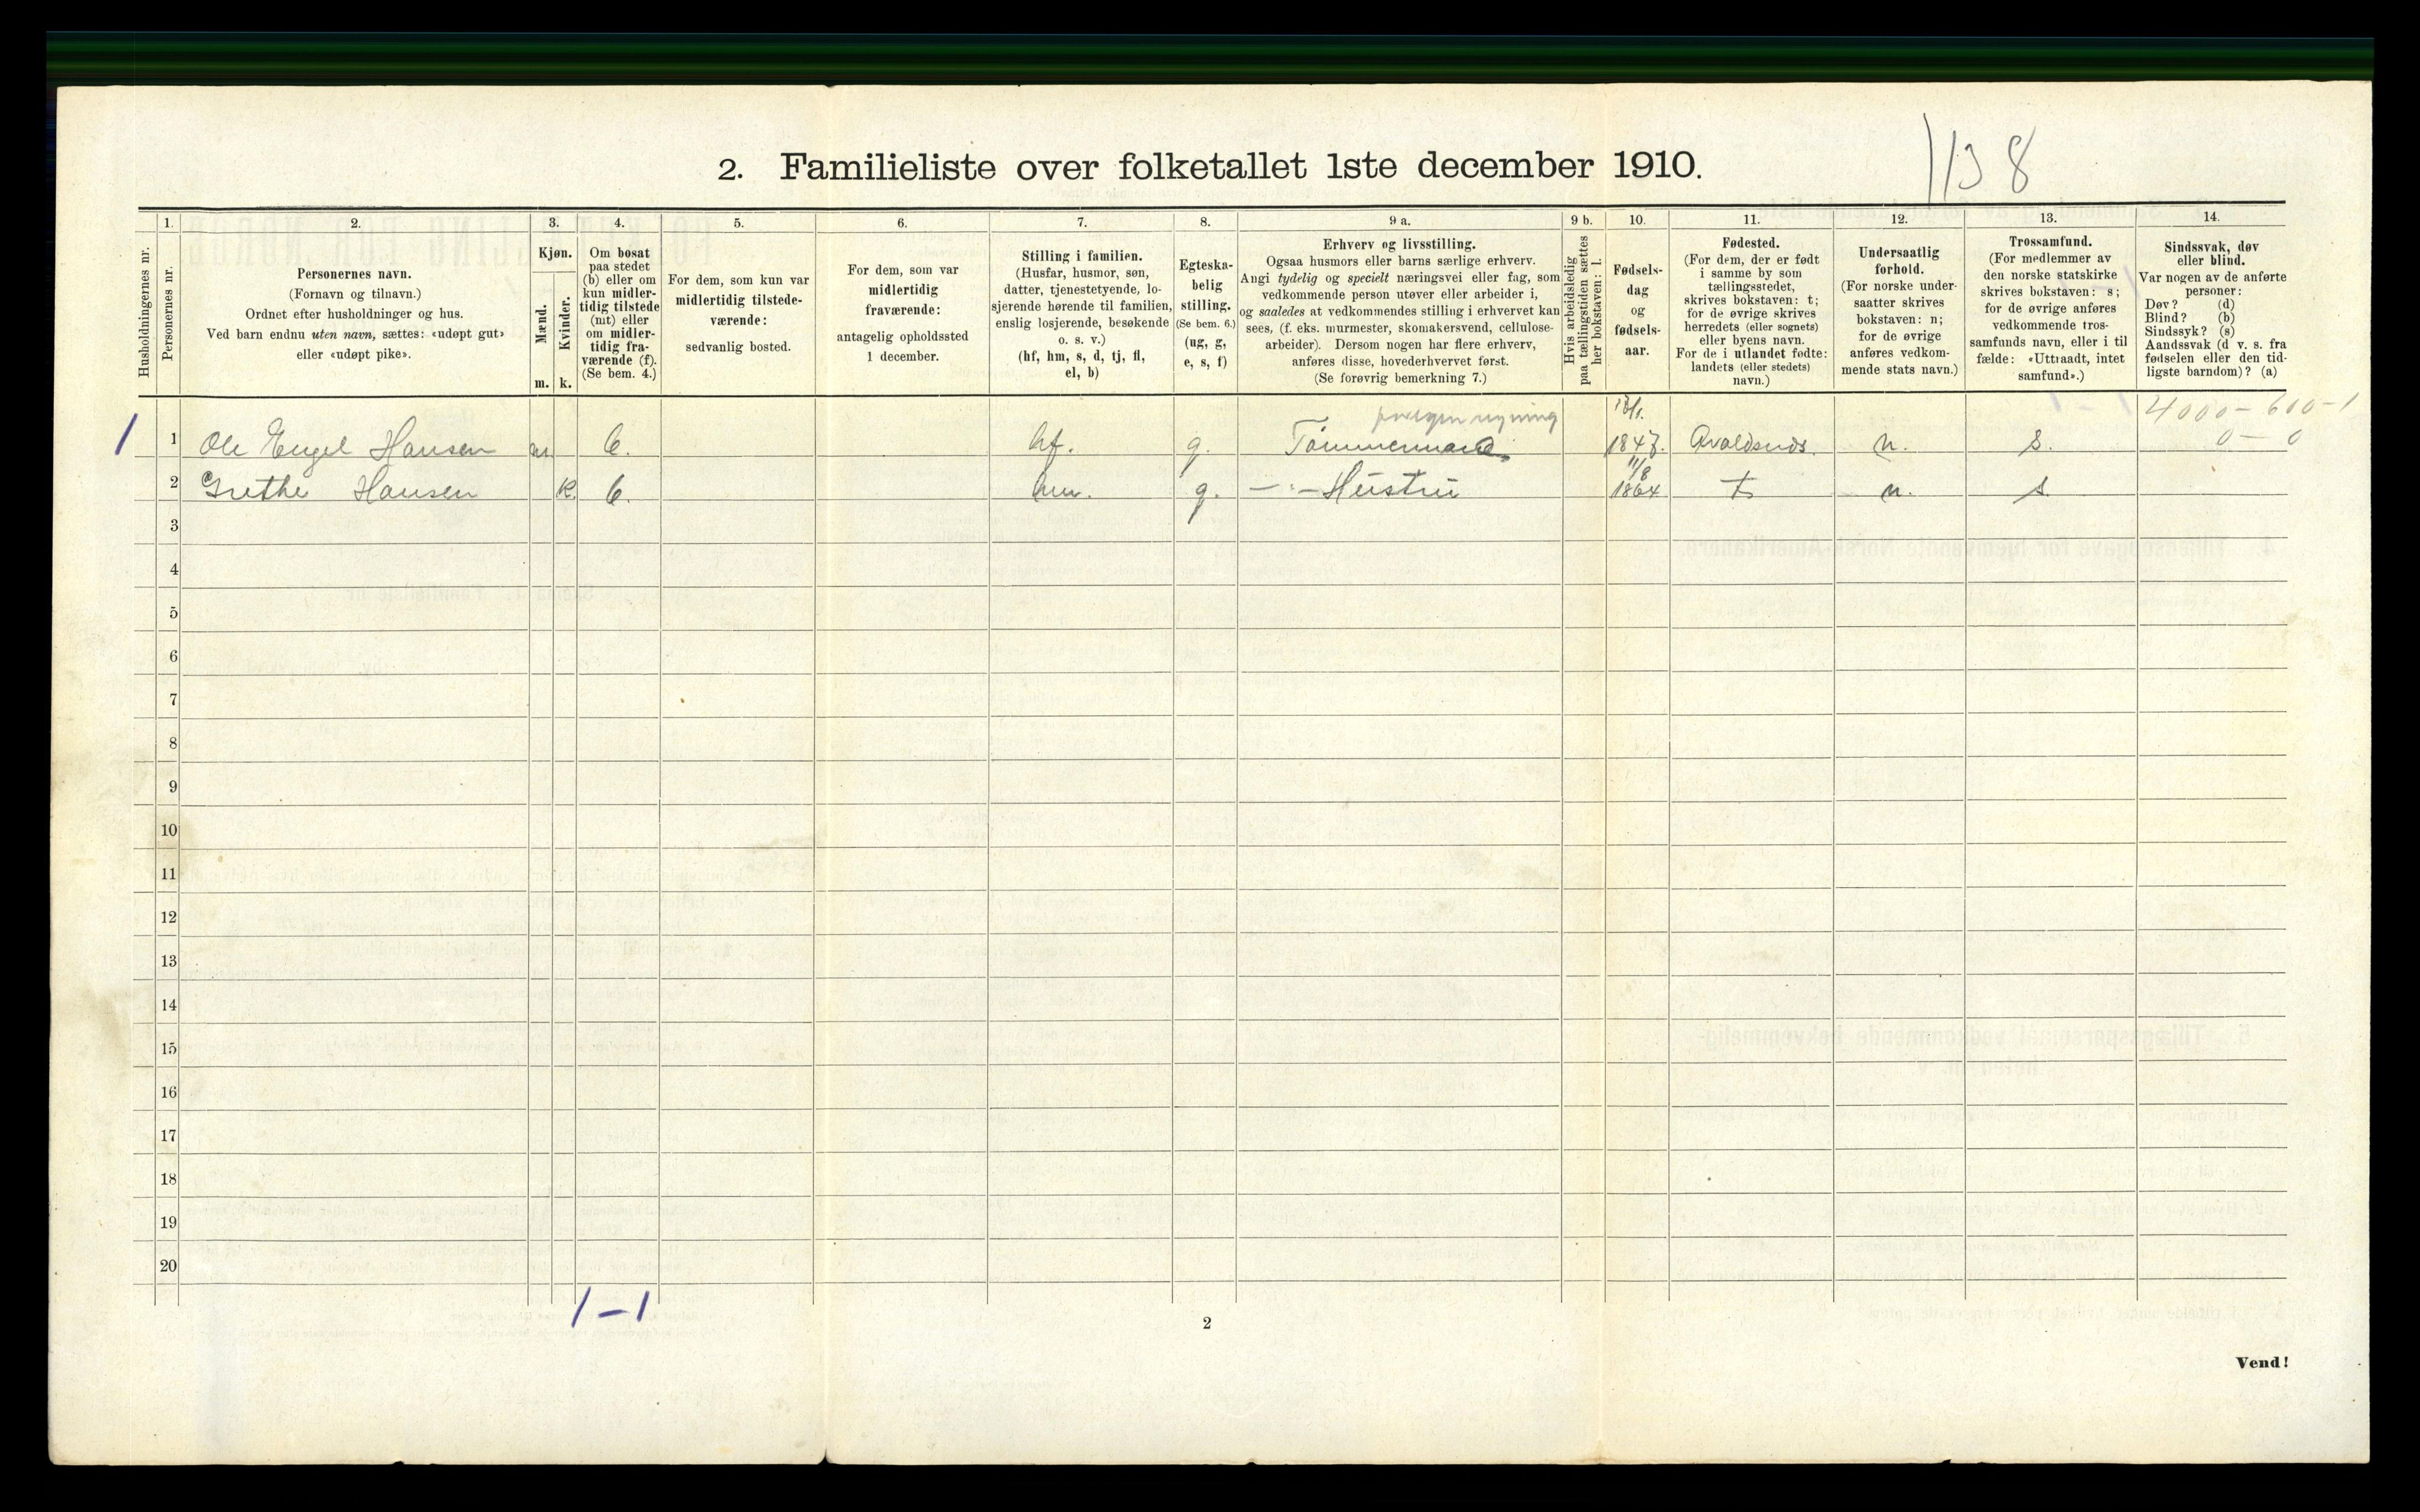 138
2. Familieliste over folketallet 1ste december 1910.
Husholdningernes nr.
1.
Personernes nr.
2.
Personernes navn.
(Fornavn og tilnavn.)
Ordnet efter husholdninger og hus.
Ved barn endnu uten navn, sættes: «udøpt gut»
eller «udøpt pike».
3.
Kjøn.
Mænd.
m.
Kvinder.
k.
4.
Om bosat
paa stedet
(b) eller om
kun midler-
tidig tilstede
(mt) eller
om midler-
tidig fra-
værende (f).
(Se bem. 4.)
5.
For dem, som kun var
midlertidig tilstede-
værende:
sedvanlig bosted.
6.
For dem, som var
midlertidig
fraværende:
antagelig opholdssted
1 december.
7.
Stilling i familien.
(Husfar, husmor, søn,
datter, tjenestetyende, lo-
sjerende hørende til familien,
enslig losjerende, besøkende
o. s. v.)
(hf, hm, s, d, tj, fl,
el, b)
8.
Egteska-
belig
stilling.
(Se bem. 6.)
(ug, g,
e, s, f)
9 a.
Erhverv og livsstilling.
Ogsaa husmors eller barns særlige erhverv.
Angi tydelig og specielt næringsvei eller fag, som
vedkommende person utøver eller arbeider i,
og saaledes at vedkommendes stilling i erhvervet kan
sees, (f. eks. murmester, skomakersvend, cellulose-
arbeider). Dersom nogen har flere erhverv,
anføres disse, hovederhvervet først.
(Se forøvrig bemerkning 7.)
9 b.
Hvis arbeidsledig
paa tællingstiden sættes
her bokstaven: l.
10.
Fødsels-
dag
og
fødsels-
aar.
11.
Fødested.
(For dem, der er født
i samme by som
tællingsstedet,
skrives bokstaven: t;
for de øvrige skrives
herredets (eller sognets)
eller byens navn.
For de i utlandet fødte:
landets (eller stedets)
navn.)
12.
Undersaatlig
forhold.
(For norske under-
saatter skrives
bokstaven: n;
for de øvrige
anføres vedkom-
mende stats navn.)
13.
Trossamfund.
(For medlemmer av
den norske statskirke
skrives bokstaven: s;
for de øvrige anføres
vedkommende tros-
samfunds navn, eller i til
fælde: «Uttraadt, intet
samfund».)
14.
Sindssvak, døv
eller blind.
Var nogen av de anførte
personer:
Døv? (d)
Blind? (b)
Sindssyk? (s)
Aandssvak (d v. s. fra
fødselen eller den tid-
ligste barndom)? (a)
4000-600-1
0-0
1 1 Ole Engel Hansen m b. hf. g. Tømmermand 1847. Avaldsnes. n. s.
11/8
2 Grethe Hansen k. b. hm. g. -"- Hustru 1864 t n. s.
3
4
5
6
7
8
9
10
11
12
13
14
15
16
17
18
19
20
1-1
2
Vend!